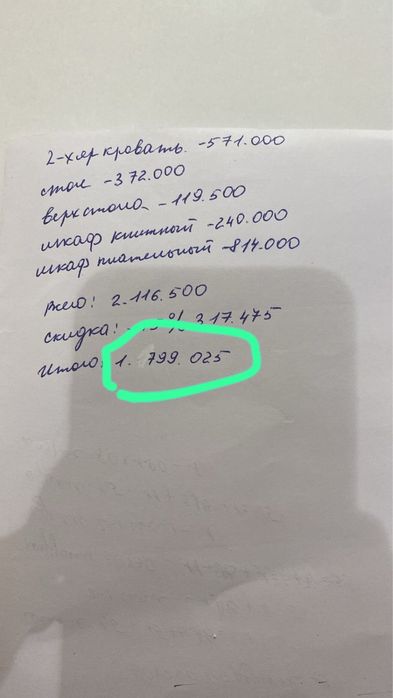 2-хяр кровать. -571.000
стол -372.000
верх стола -119.500
шкаф книжный -240.000
шкаф плательный -814.000
Всего: 2.116.500
скидка: % 317.475
Итого: 1. 799. 025